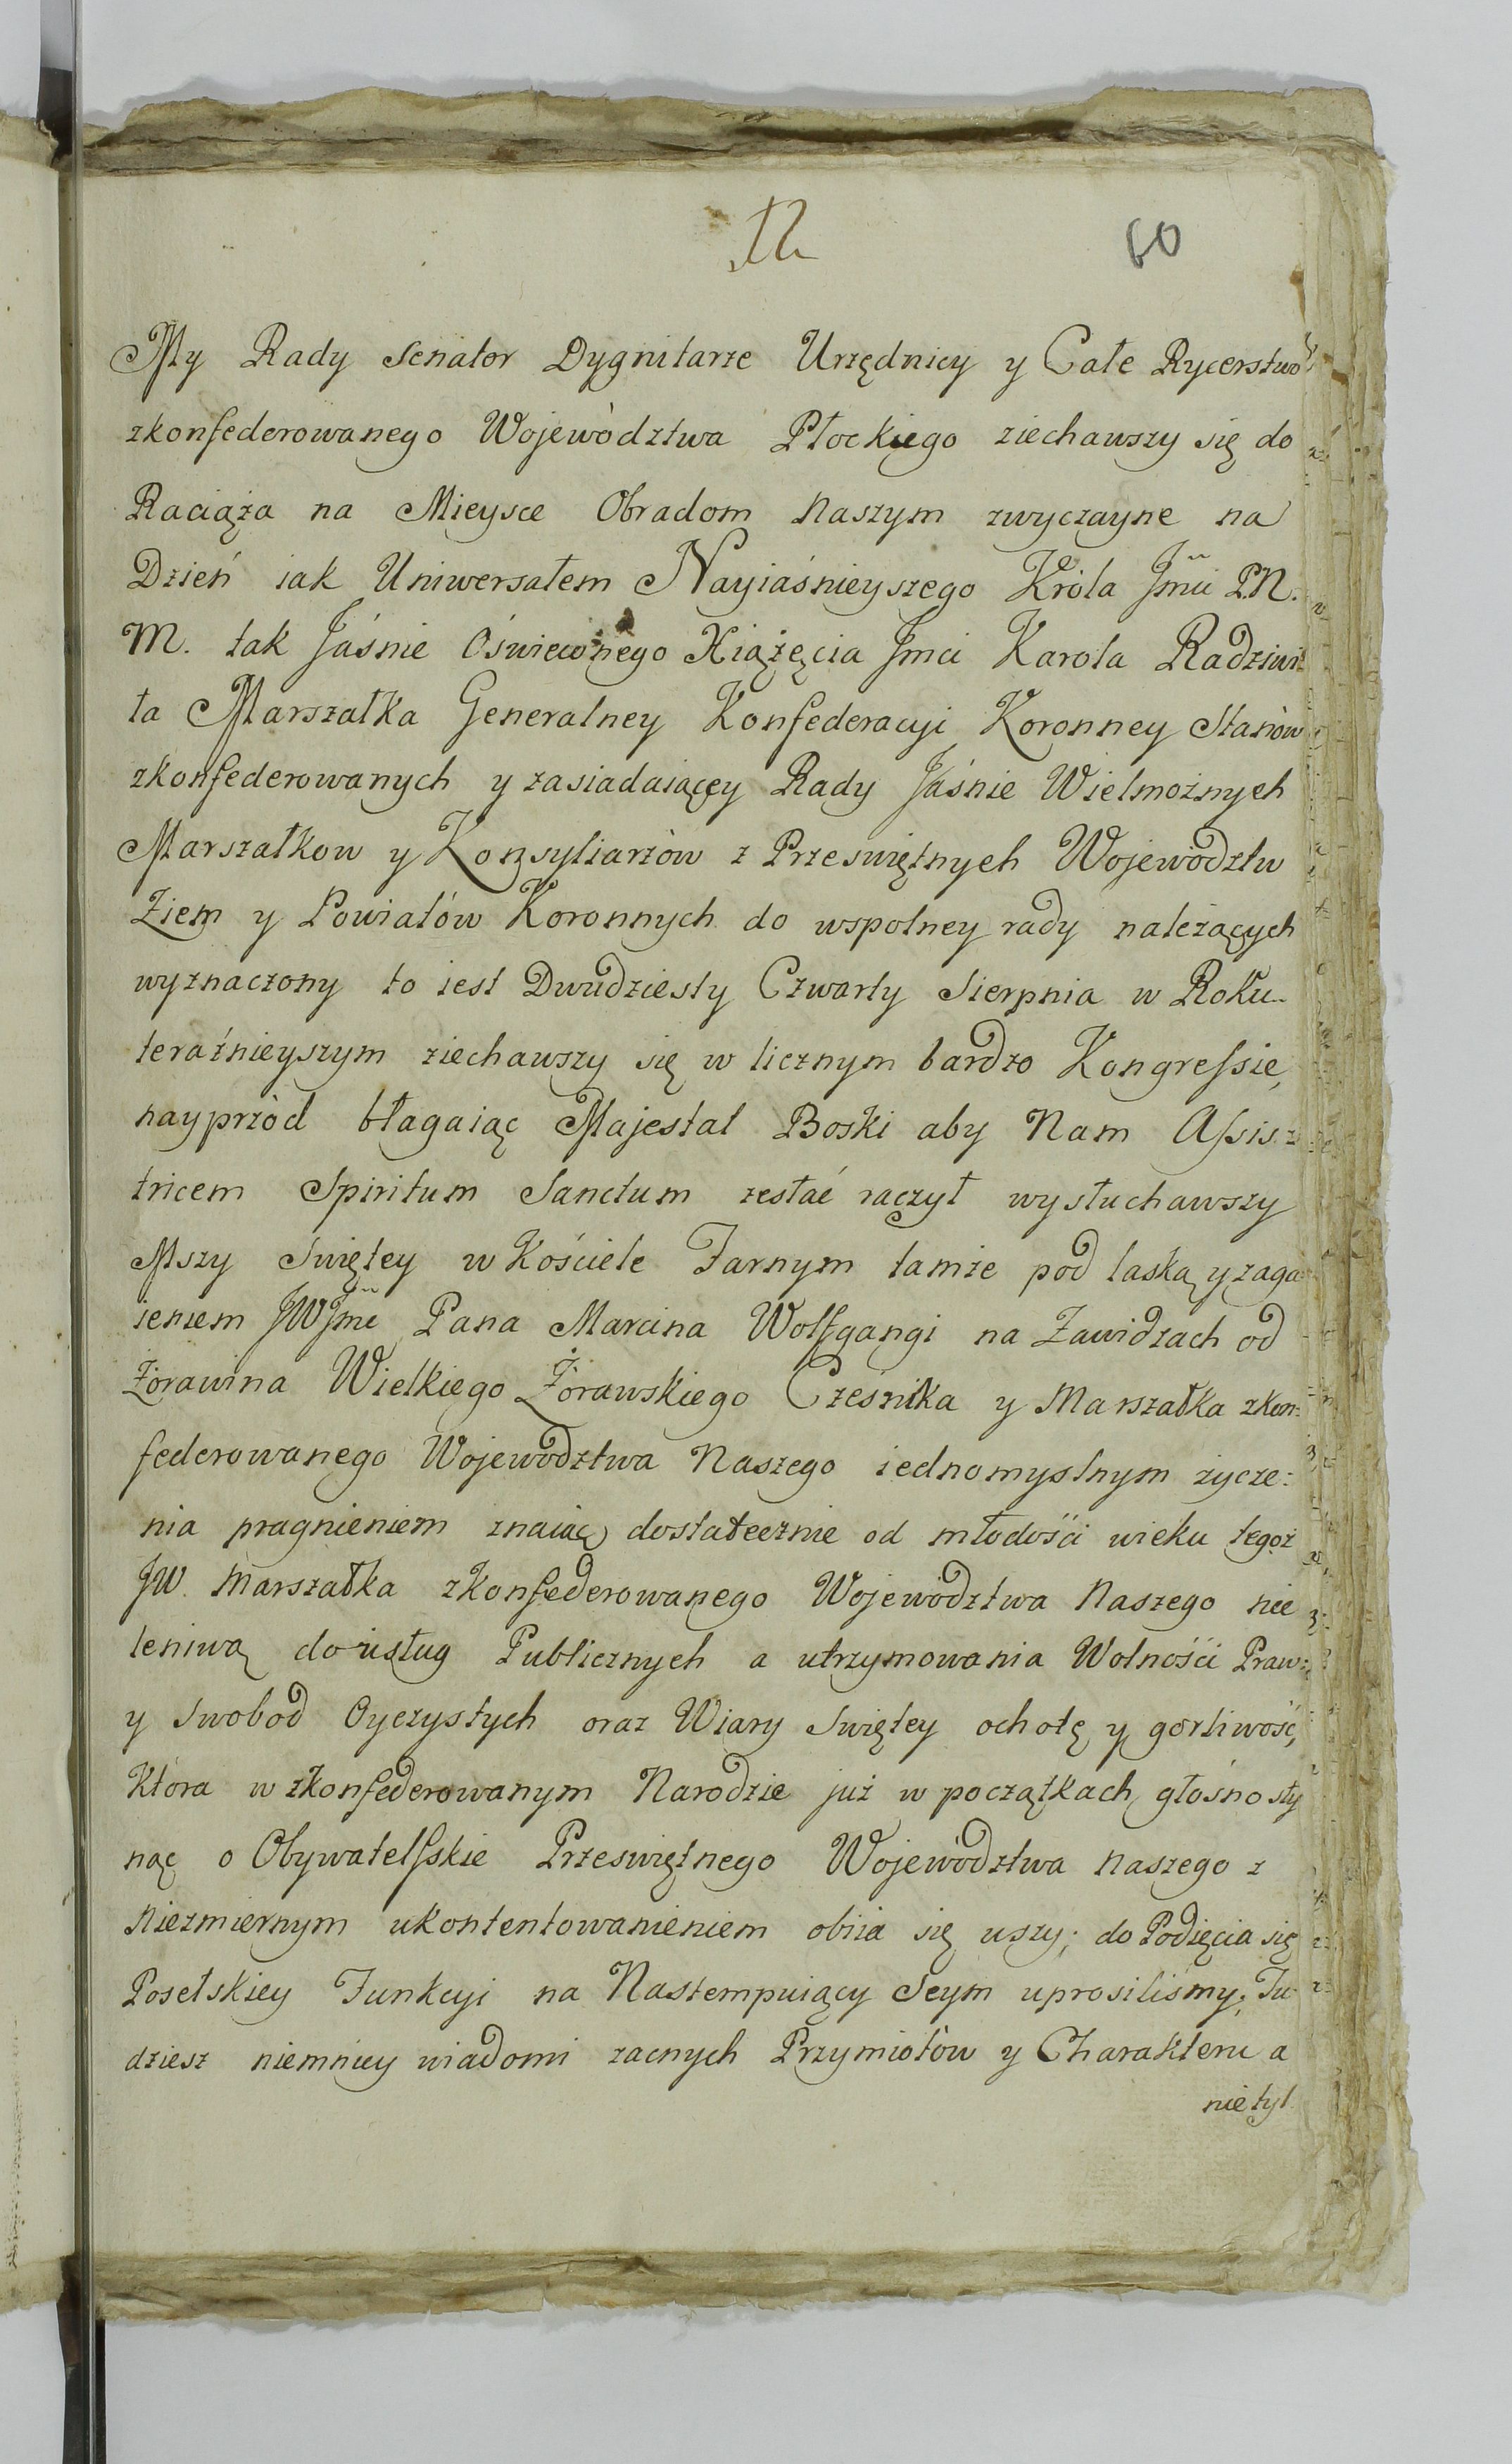 12
60
My Rady Senator Dygnitarze Urzędnicy y Całe Rycerstwo
zkonfederowanego Wojewòdztwa Płockiego ziechawszy się do
Raciąża na Mieysce Obradom Naszym zwyczayne na
Dzień iak Uniwersałem Nayiaśnieyszego Króla Jmci P.N.
M. tak Jáśnie Oświeconego Xiążęcia Jmci Karola Radziwił
ła Marszałka Generalney Konfederacyi Koronney Stanòw
zkonfederowanych y zasiadaiącey Rady Jáśnie Wielmożnych
Marszałkow y Konsyliarzòw z Przeświętnych Wojewòdztw
Ziem y Powiatòw Koronnych do wspolney rady należących
wyznaczony to iest Dwudziesty Czwarty Sierpnia w Roku
teraźnieyszym ziechawszy się w licznym bardzo Kongreſsie,
nayprzòd błagaiąc Majestat Boski aby Nam Aſsis:
tricem Spiritum Sanctum zesłać raczył wysłuchawszy
Mszy Swiętey w Kościele Farnym tamże pod laską y zaga
ieniem JWJmci Pana Marcina Wolfgangi na Zawidzach od
Żorawina Wielkiego Żorawskiego Cześnika y Marszałka zkon:
federowanego Wojewòdztwa Naszego iednomyslnym życze:
nia pragnieniem znaiąc dostatecznie od młodośći wieku tegoż
JW. Marszałka zkonfederowanego Wojewòdztwa Naszego nie
leniwą do usług Publicznych a utrzymowania Wolnośći Praw:
y Swobod Oyczystych oraz Wiary Swiętey ochotę y gorliwość,
Ktora w zkonfederowanym Narodzie już w początkach głośno sły
nąc o Obywatelſskie Przeświętnego Wojewòdztwa Naszego z
Niezmiernym ukontentowanieniem obiia się uszy; do Podięcia się
Poselskiey Funkcyi na Nastempuiący Seym uprosiliśmy; Tu
dziesz niemniey wiadomi zacnych Przymiotòw y Charakteru a
nie tyl